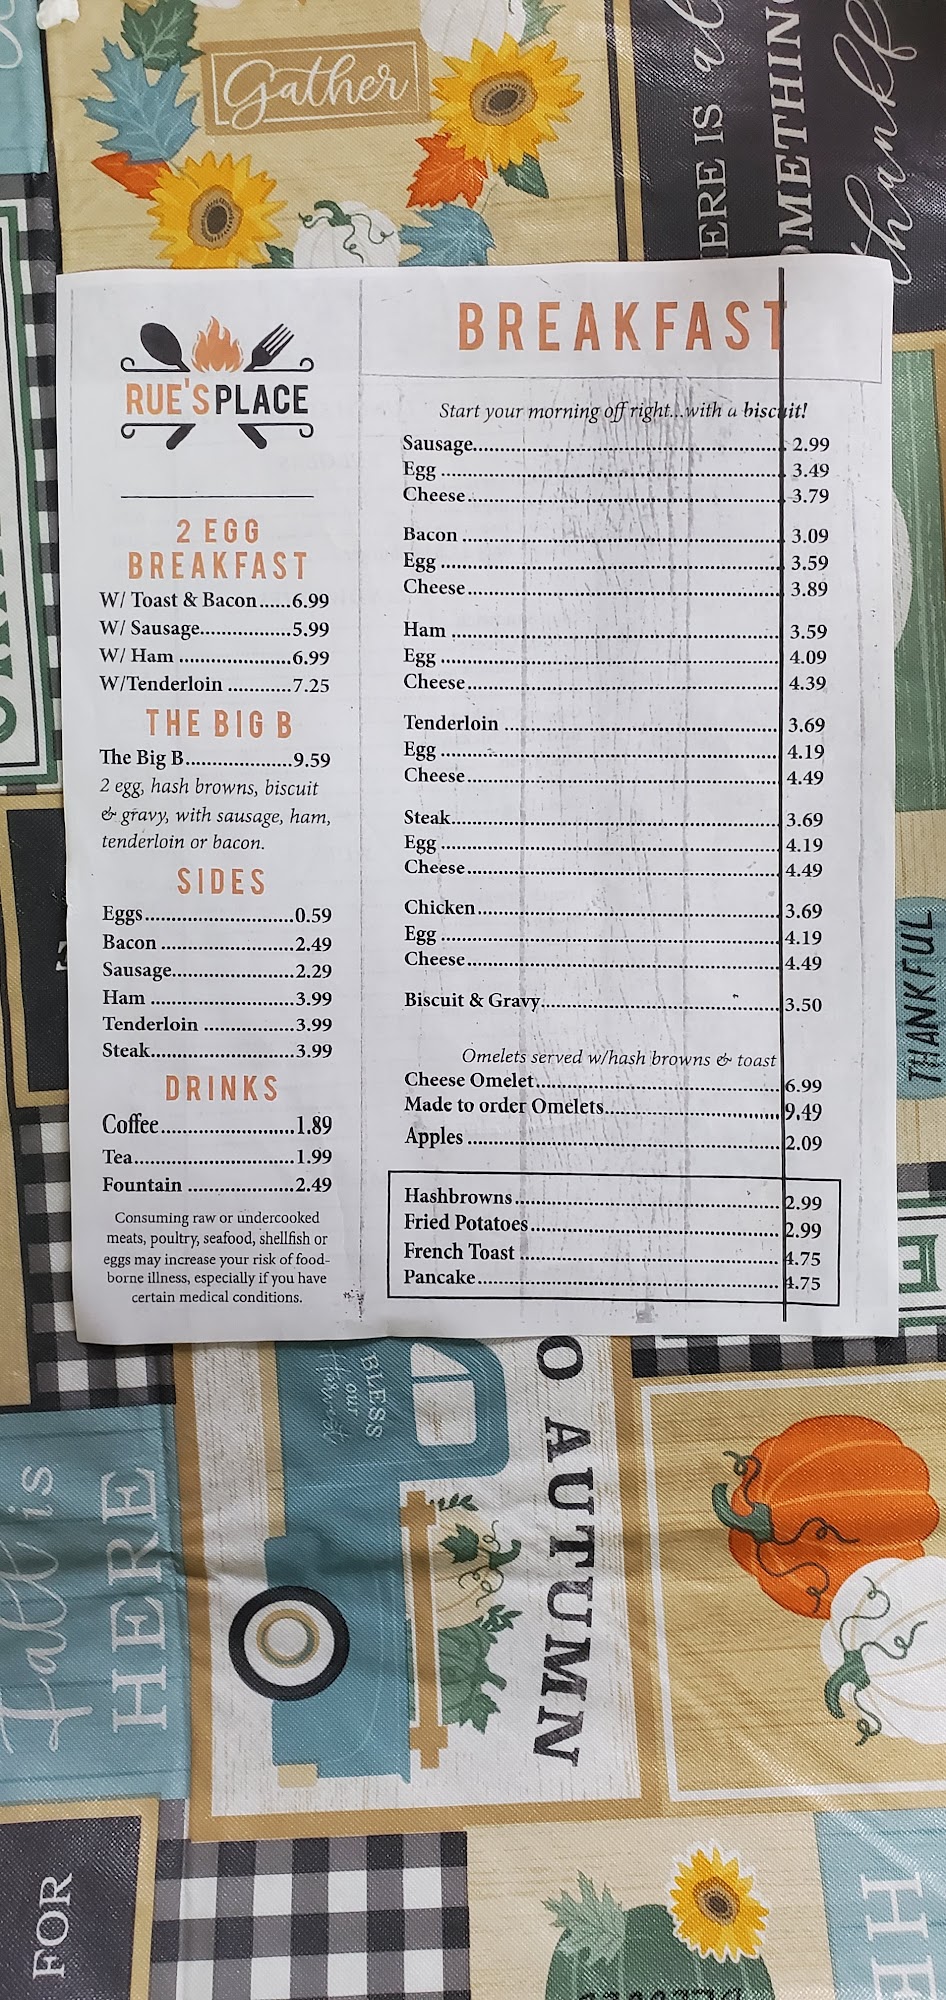 Gather
ERE IS
OMETHIN
thankf
RUE'S PLACE
2 EGG
BREAKFAST
W/ Toast & Bacon......6.99
W/ Sausage.................5.99
W/ Ham .....................6.99
W/Tenderloin ............7.25
THE BIG B
The Big B....................9.59
2 egg, hash browns, biscuit
& gravy, with sausage, ham,
tenderloin or bacon.
SIDES
Eggs............................0.59
Bacon .........................2.49
Sausage.......................2.29
Ham ...........................3.99
Tenderloin .................3.99
Steak...........................3.99
DRINKS
Coffee.........................1.89
Tea..............................1.99
Fountain .....................2.49
Consuming raw or undercooked
meats, poultry, seafood, shellfish or
eggs may increase your risk of food-
borne illness, especially if you have
certain medical conditions.
BREAKFAST
Start your morning off right...with a biscuit!
Sausage.......................................................... 2.99
Egg ................................................................ 3.49
Cheese........................................................... 3.79
Bacon ............................................................ 3.09
Egg ................................................................ 3.59
Cheese........................................................... 3.89
Ham .............................................................. 3.59
Egg ................................................................ 4.09
Cheese........................................................... 4.39
Tenderloin .................................................... 3.69
Egg ................................................................ 4.19
Cheese........................................................... 4.49
Steak.............................................................. 3.69
Egg ................................................................ 4.19
Cheese........................................................... 4.49
Chicken......................................................... 3.69
Egg ................................................................ 4.19
Cheese........................................................... 4.49
Biscuit & Gravy............................................. 3.50
Omelets served w/hash browns & toast
Cheese Omelet.............................................. 6.99
Made to order Omelets................................. 9.49
Apples ........................................................... 2.09
Hashbrowns.................................................. 2.99
Fried Potatoes............................................... 2.99
French Toast ................................................. 4.75
Pancake......................................................... 4.75
THANKFUL
BLESS
our
Harvest
O AUTUMN
Fall is
HERE
FOR